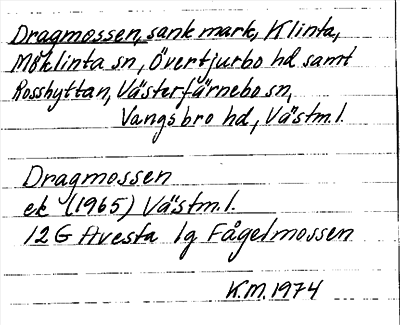 Dragmossen, sank mark, Klinta,
Möklinta sn, Övertjurbo hd samt
Rosshyttan, Västerfärnebo sn,
Vangsbro hd, Västm.l.
Dragmossen
ek (1965) Västm.l.
12G Avesta 1g Fågelmossen
K.M. 1974